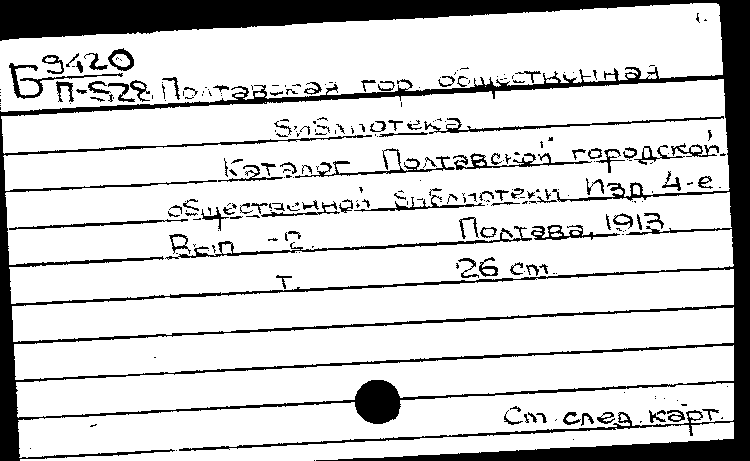 Б 9420
П-528 Полтавская гор. общественная
библиотека.
Каталог Полтавской городской
общественной библиотеки. Изд. 4-е.
Вып. -2. Полтава, 1913.
т. 26 cm.
См. след. карт.